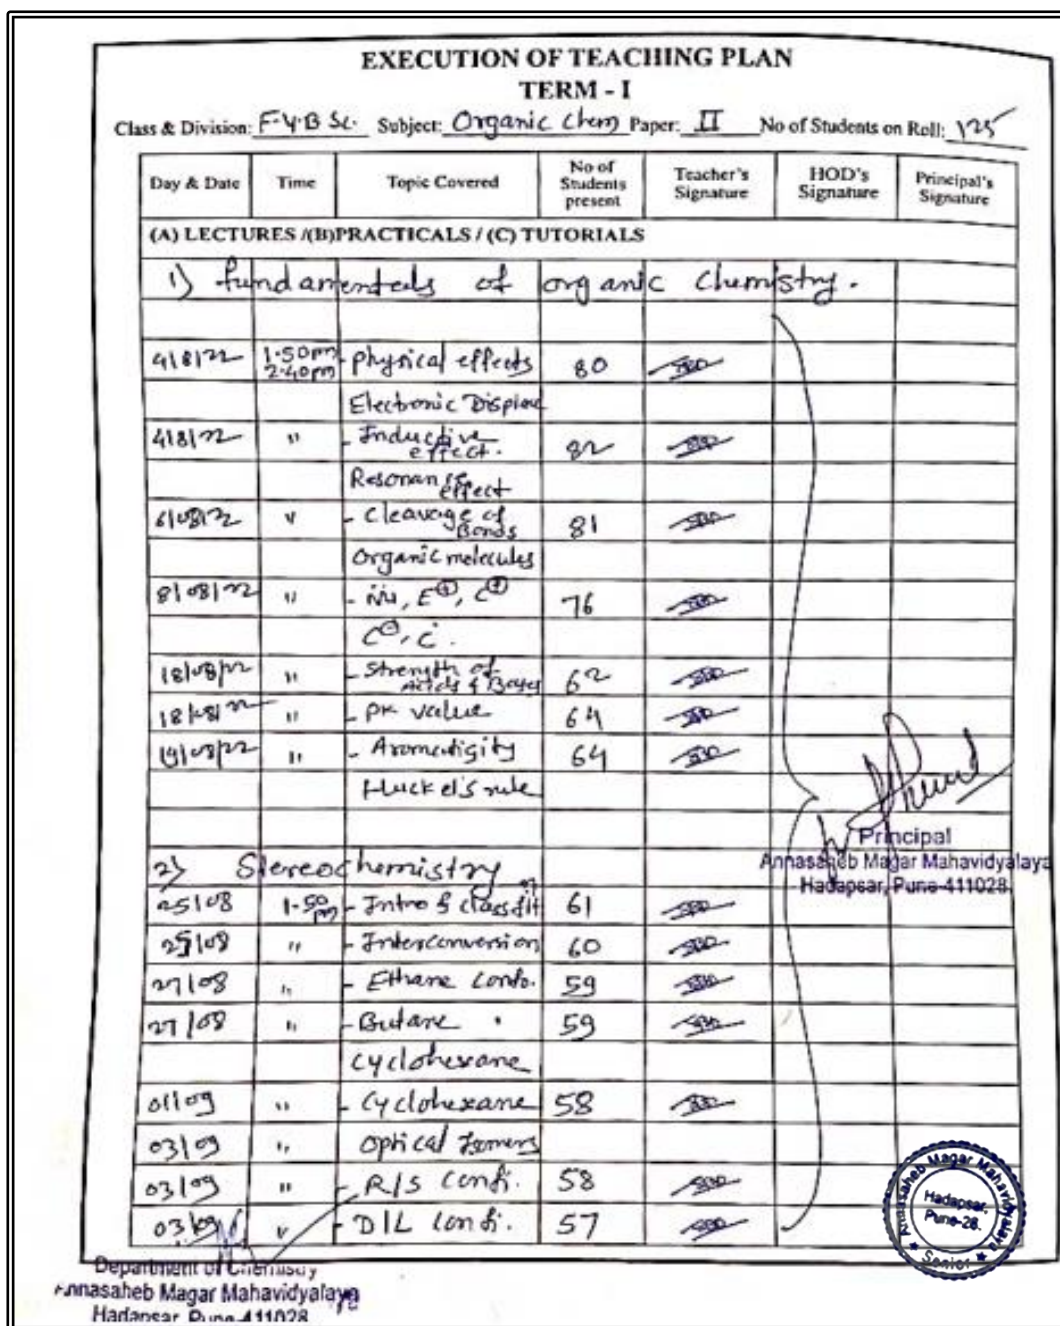 EXECUTION OF TEACHING PLAN
TERM - I
Class & Division: F.Y.B Sc. Subject: Organic Chem Paper: II No of Students on Roll: 125
Day & Date Time Topic Covered No of Students present Teacher's Signature HOD's Signature Principal's Signature
(A) LECTURES /(B)PRACTICALS / (C) TUTORIALS
1) fundamentals of organic Chemistry.
4/8/22 1.50pm 2.40pm - physical effects 80
Electronic Displace
4/8/22 " - Inductive effect. 82
Resonance effect
6/08/22 " - Cleavage of Bonds 81
Organic molecules
8/08/22 " - Nu, E⊕, C⊕ 76
C⊖, C.
18/08/22 " - Strength of Acids & Bases 62
18/08/22 " - pK value 64
19/08/22 " - Aromatigity 64
Huckel's rule
Principal
Annasaheb Magar Mahavidyalaya
Hadapsar, Pune-411028.
2) Stereochemistry
25/08 1-50 pm - Intro & classfitn 61
25/08 " - Interconversion 60
27/08 " - Ethane Confo. 59
27/08 " - Butane 59
Cyclohexane
01/09 " - Cyclohexane 58
03/09 " Optical Isomers
03/09 " - R/S Confi. 58
03/09 " - D/L Confi. 57
Annasaheb Magar Mahavidyalaya
Hadapsar, Pune-28.
Senior
Department of Chemistry
Annasaheb Magar Mahavidyalaya
Hadapsar, Pune-411028